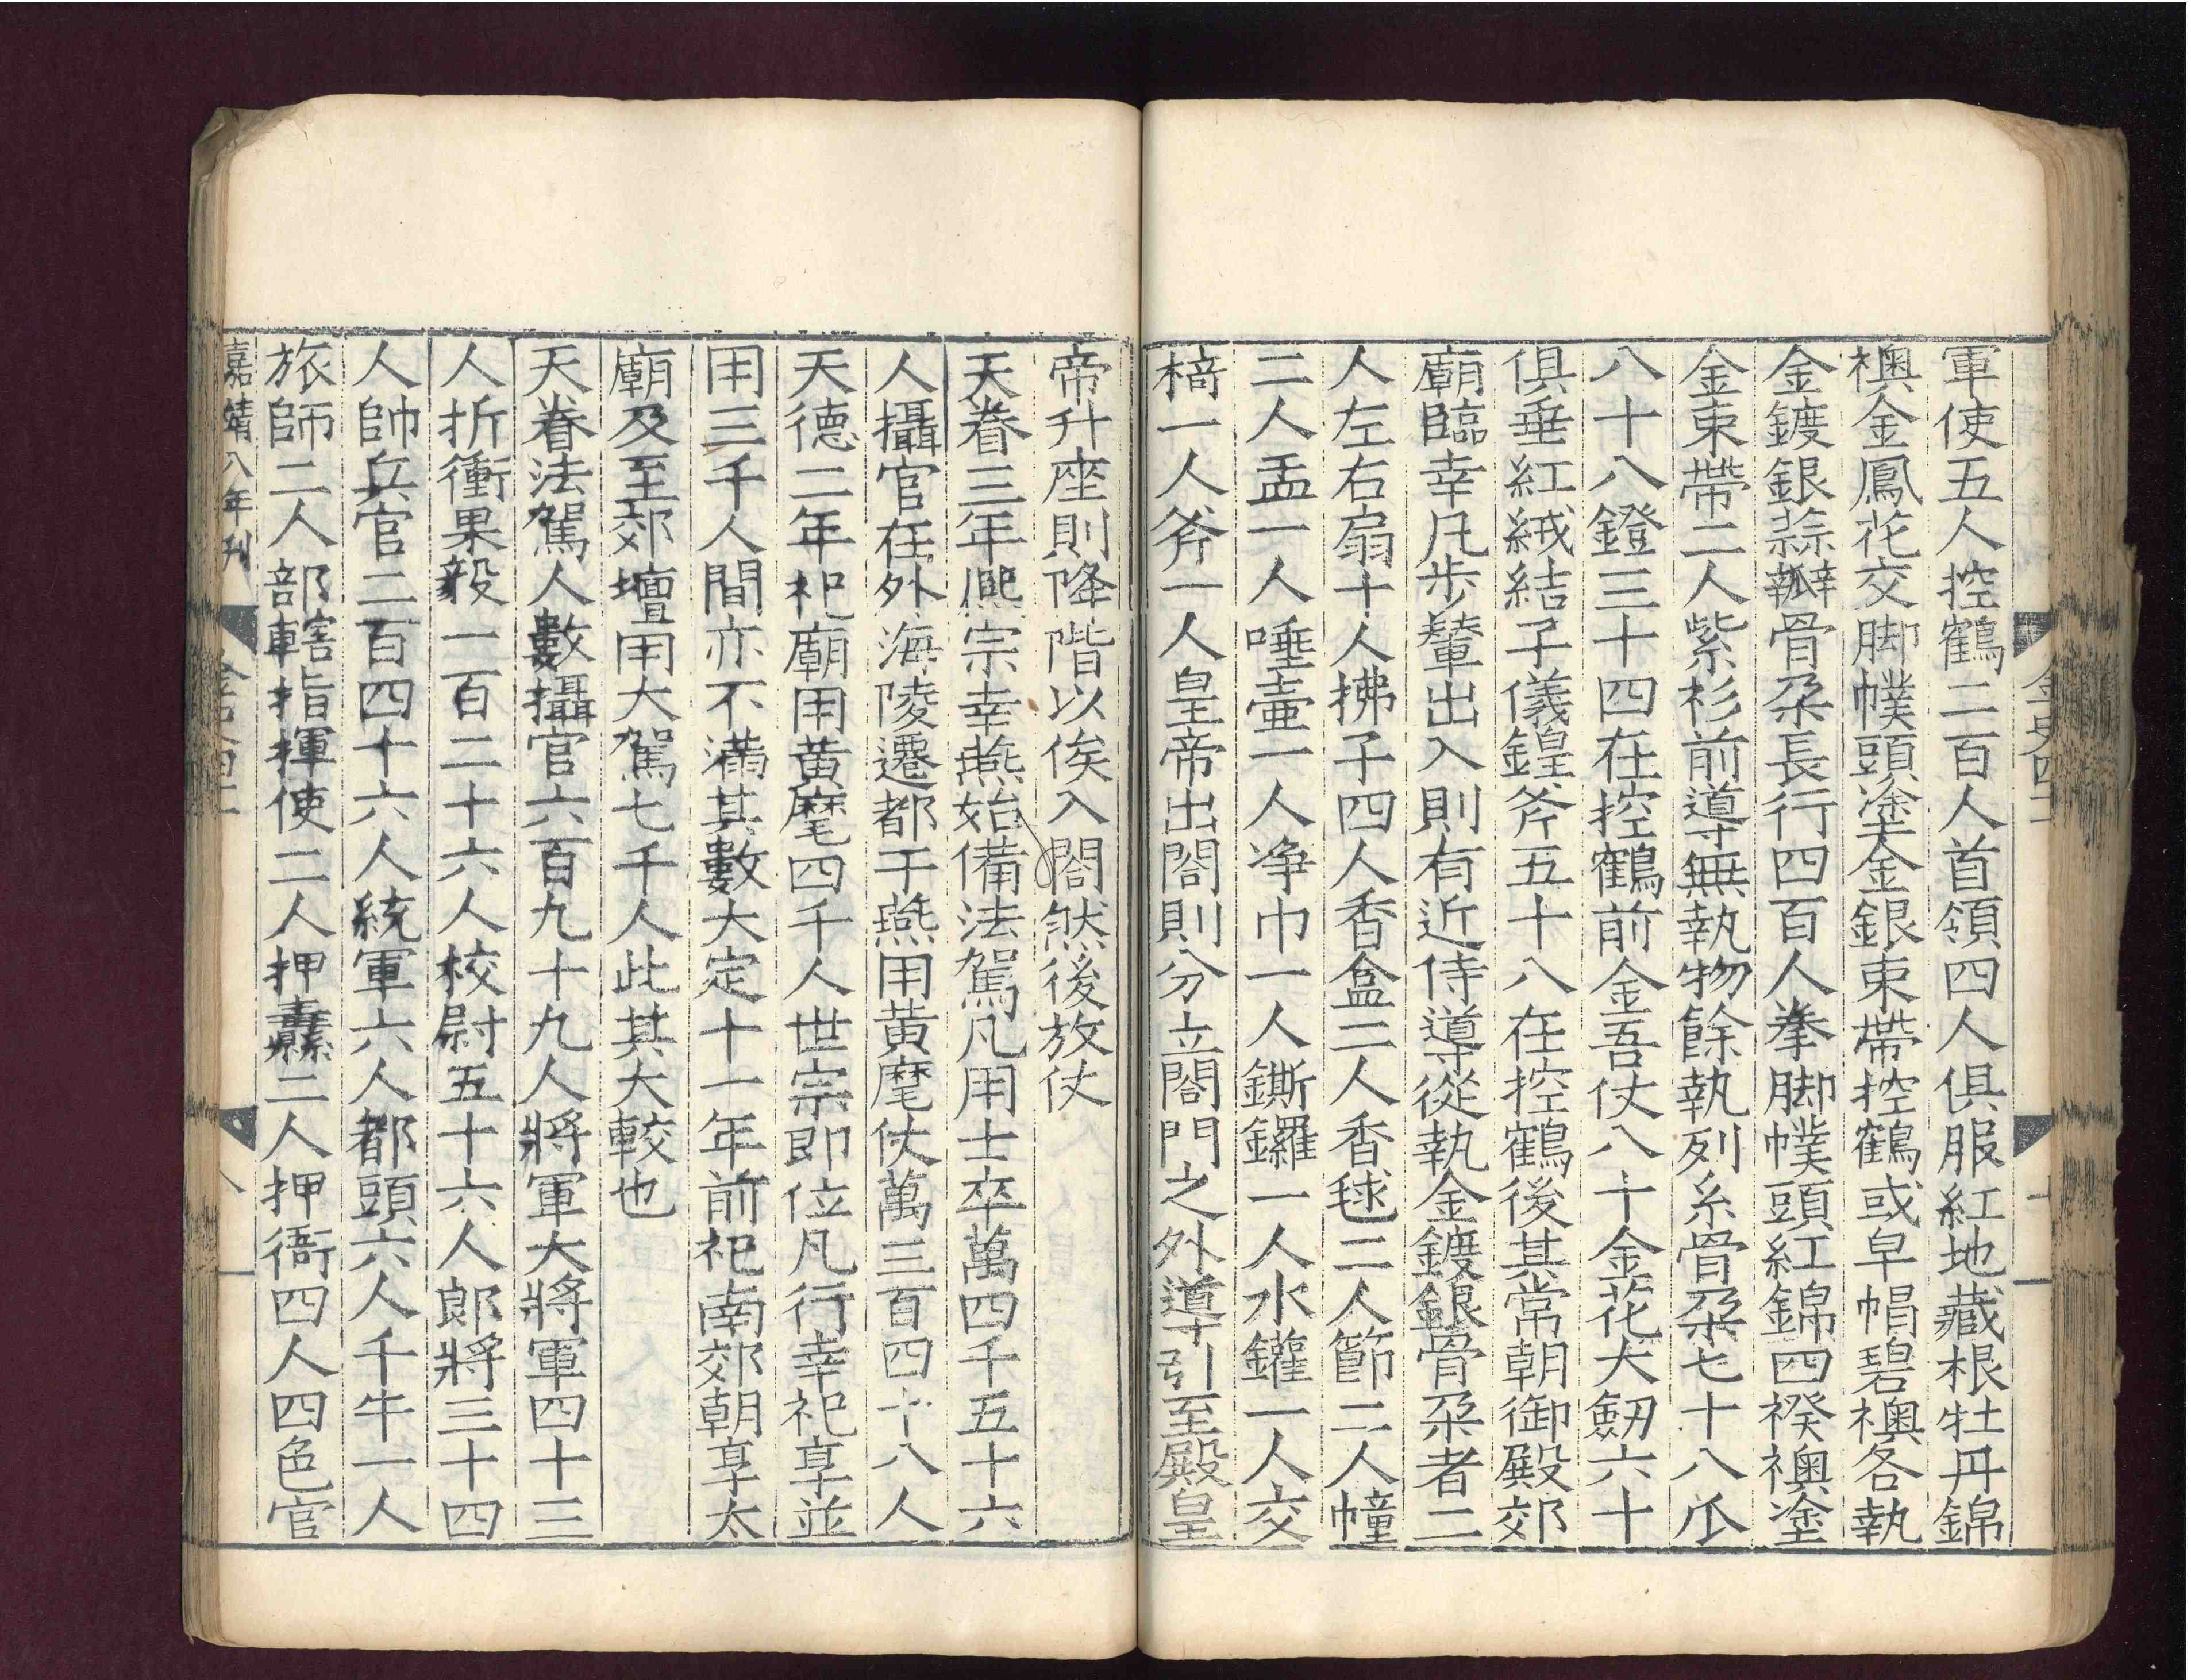 軍使五人控鶴二百人首領四人俱服紅地藏根牡丹錦
襖金鳳花交脚幞頭塗金銀束帶控鶴或皁帽碧襖各執
金鍍銀蒜瓣骨朶長行四百人拳脚幞頭紅錦四䙆襖塗
金束帶二人紫衫前導無執物餘執列糸骨朶七十八瓜
八十八鐙三十四在控鶴前金吾仗八十金花大劒六十
俱垂紅絨結子儀鍠斧五十八在控鶴後其常朝御殿郊
廟臨幸凡步輦出入則有近侍導從執金鍍銀骨朶者二
人左右扇十人拂子四人香盒二人香毬二人節二人幢
二人盂一人唾壷一人净巾一人鐁鑼一人水鑵一人交
椅一人斧一人皇帝出閤則分立閤門之外導引至殿皇
金史四十二
十
帝升座則降階以俟入閤然後放仗
天眷三年熈宗幸燕始備法駕凡用士卒萬四千五十六
人攝官在外海陵遷都于燕用黃麾仗萬三百四十八人
天德二年祀廟用黃麾四千人世宗即位凡行幸祀享並
用三千人間亦不滿其數大定十一年前祀南郊朝享太
廟及至郊壇用大駕七千人此其大較也
天眷法駕人數攝官六百九十九人將軍大將軍四十三
人折衝果毅一百二十六人校尉五十六人郎將三十四
人帥兵官二百四十六人統軍六人都頭六人千牛一人
旅師二人部轄指揮使二人押纛二人押衙四人四色官
嘉靖八年刊
金史四十二
八